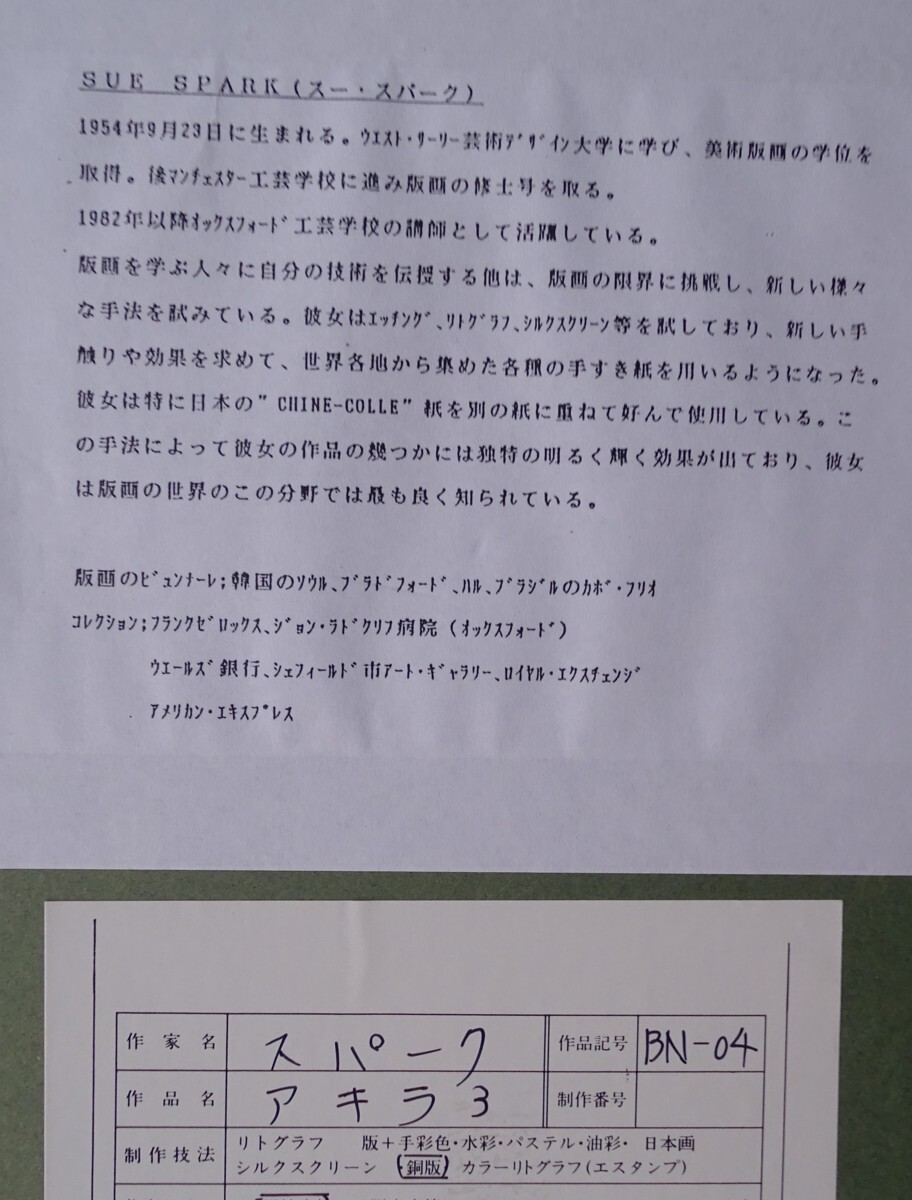 SUE SPARK(スー・スパーク)
1954年9月23日に生まれる。ｳｴｽﾄ・ｻｰﾘｰ芸術ﾃﾞｻﾞｲﾝ大学に学び、美術版画の学位を
取得。後ﾏﾝﾁｪｽﾀｰ工芸学校に進み版画の修士号を取る。
1982年以降ｵｯｸｽﾌｫｰﾄﾞ工芸学校の講師として活躍している。
版画を学ぶ人々に自分の技術を伝授する他は、版画の限界に挑戦し、新しい様々
な手法を試みている。彼女はｴｯﾁﾝｸﾞ、ﾘﾄｸﾞﾗﾌ、ｼﾙｸｽｸﾘｰﾝ等を試しており、新しい手
触りや効果を求めて、世界各地から集めた各種の手すき紙を用いるようになった。
彼女は特に日本の"CHINE-COLLE"紙を別の紙に重ねて好んで使用している。こ
の手法によって彼女の作品の幾つかには独特の明るく輝く効果が出ており、彼女
は版画の世界のこの分野では最も良く知られている。
版画のﾋﾞｭﾝﾅｰﾚ;韓国のｿｳﾙ、ﾌﾞﾗﾄﾞﾌｫｰﾄﾞ、ﾊﾙ、ﾌﾞﾗｼﾞﾙのｶﾎﾞ・ﾌﾘｵ
ｺﾚｸｼｮﾝ;ﾌﾗﾝｸｾﾞﾛｯｸｽ、ｼﾞｮﾝ・ﾗﾄﾞｸﾘﾌ病院(ｵｯｸｽﾌｫｰﾄﾞ)
ｳｴｰﾙｽﾞ銀行、ｼｪﾌｨｰﾙﾄﾞ市ｱｰﾄ・ｷﾞｬﾗﾘｰ、ﾛｲﾔﾙ・ｴｸｽﾁｪﾝｼﾞ
ｱﾒﾘｶﾝ・ｴｷｽﾌﾟﾚｽ
作家名 スパーク 作品記号 BN-04
作品名 アキラ3 制作番号
制作技法 リトグラフ 版＋手彩色・水彩・パステル・油彩・日本画
シルクスクリーン 銅版 カラーリトグラフ(エスタンプ)